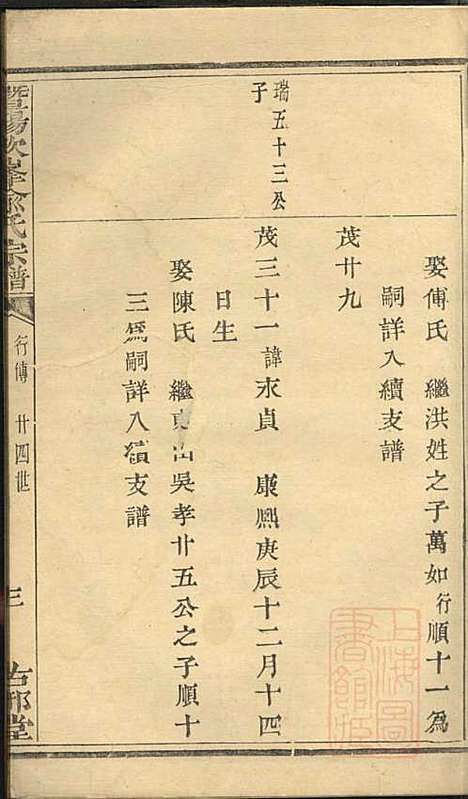 娶傅氏 繼洪姓之子萬如行順十一為
嗣詳入續支譜
茂廿九
瑞五十三公子
茂三十一諱永貞 康熙庚辰十二月十四
日生
娶陳氏 繼東山吳孝廿五公之子順十
三為嗣詳入續支譜
暨陽次峯俞氏宗譜
行傳 廿四世
三
上海圖書館藏